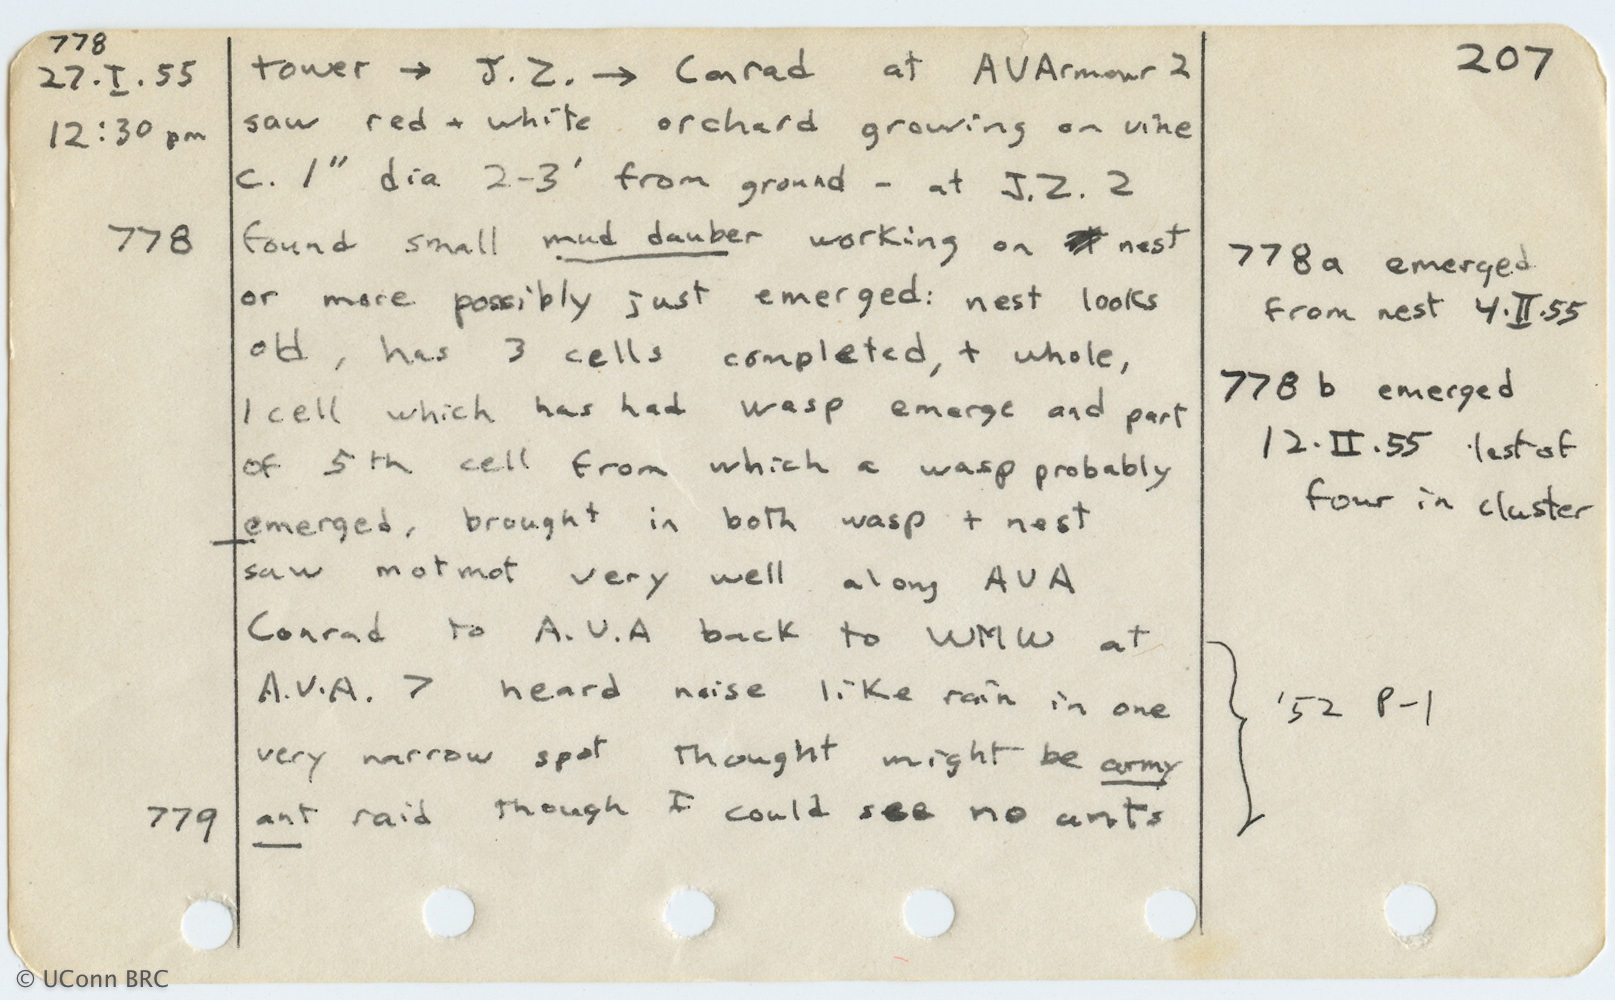 778
27.I.55
12:30 pm
207
tower → J.Z. → Conrad at AVArmour 2
saw red + white orchard growing on vine
c. 1" dia 2-3' from ground - at J.Z. 2
778 found small mud dauber working on nest
or more possibly just emerged: nest looks
old, has 3 cells completed, + whole,
1 cell which has had wasp emerge and part
of 5th cell from which a wasp probably
emerged, brought in both wasp + nest
saw motmot very well along AVA
Conrad to A.V.A back to WMW at
A.V.A. 7 heard noise like rain in one
very narrow spot thought might be army
779 ant raid though I could see no ants
778a emerged
from nest 4.II.55
778 b emerged
12.II.55 last of
four in cluster
'52 P-1
© UConn BRC